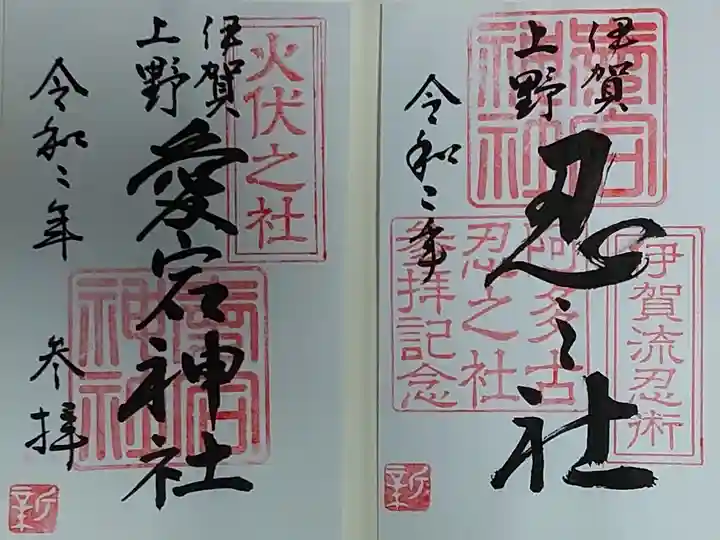 伊賀
上野
忍之社
令和二年
愛宕神社
伊賀流忍術
阿多古
忍之社
参拝記念
伊賀
上野
愛宕神社
令和二年 参拝
火伏之社
愛宕
神社
新
新